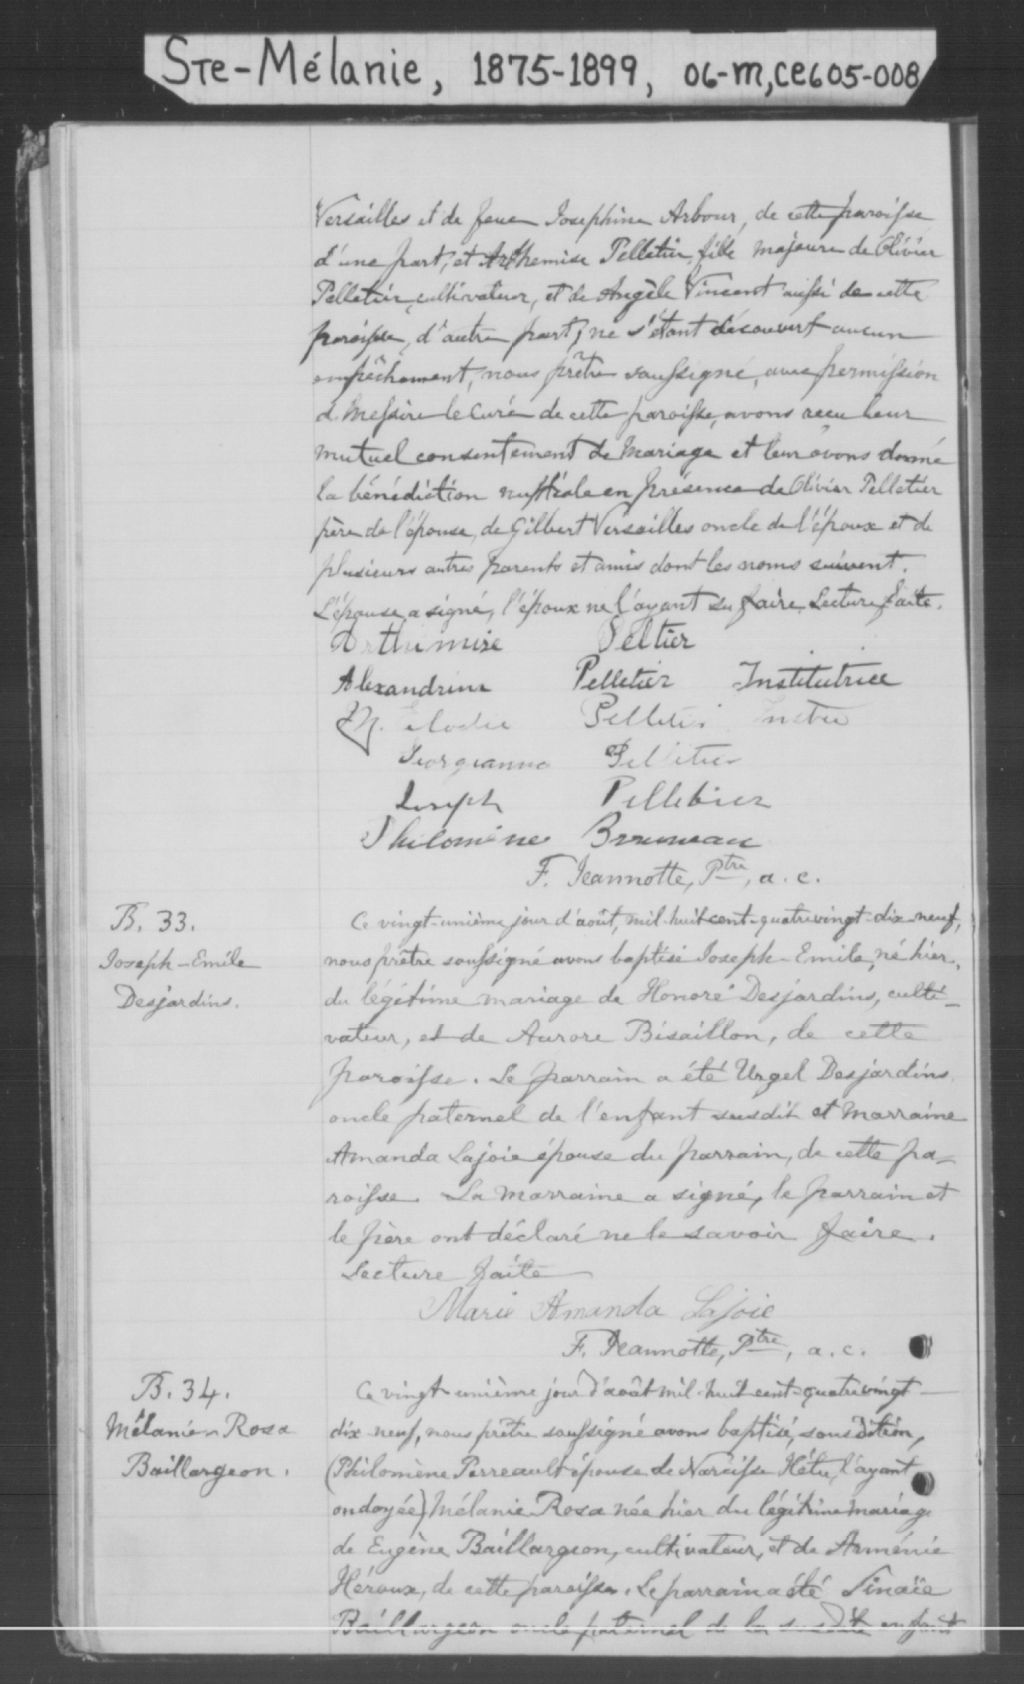 Ste-Mélanie, 1875-1899, 06-m,ce605-008
Versailles et de feue Josephine Arbour, de cette paroisse
d'une part, et Arthemise Pelletier fille majeure de Olivier
Pelletier, cultivateur, et de Angèle Vincent aussi de cette
paroisse, d'autre part; ne s'étant découvert aucun
empêchement, nous prêtre soussigné, avec permission
d. Messire le Curé de cette paroisse, avons recu leur
mutuel consentement de Mariage et leur avons donné
la bénédiction nuptiale en présence de Olivier Pelletier
père de l'épouse, de Gilbert Versailles oncle de l'époux et de
plusieurs autres parents et amis dont les noms suivent.
L'épouse a signé, l'époux ne l'ayant su faire. Lecture faite.
Arthemise Peltier
Alexandrine Pelletier Institutrice
M. Elodie Pelletier
Georgianna Pelletier
Joseph Pelletier
Philomène Bruneau
F. Jeannotte, Ptre, a. c.
B. 33.
Joseph-Emile
Desjardins.
Ce vingt-unième jour d'août, mil-huit cent-quatrevingt-dix-neuf,
nous prêtre soussigné avons baptisé Joseph-Emile, né hier,
du légitime mariage de Honoré Desjardins, culti-
vateur, et de Aurore Bisaillon, de cette
paroisse. Le parrain a été Urgel Desjardins
oncle paternel de l'enfant susdit et Marraine
Amanda Lajoie épouse du parrain, de cette pa-
roisse. La Marraine a signé, le parrain et
le père ont déclaré ne le savoir faire.
Lecture faite
Marie Amanda Lajoie
F. Jeannotte, Ptre, a. c.
B. 34.
Mélanie-Rosa
Baillargeon.
Ce vingt-unième jour d'août mil-huit cent-quatrevingt-
dix-neuf, nous prêtre soussigné avons baptisé, sous dition,
(Philomène Perreault épouse de Narcisse Hétu, l'ayant
ondoyée) Mélanie Rosa née hier du légitime mariage
de Eugène Baillargeon, cultivateur, et de Arménie
Héroux, de cette paroisse. Le parrain a été Sinaïe
Baillargeon oncle paternel de la susdite enfant